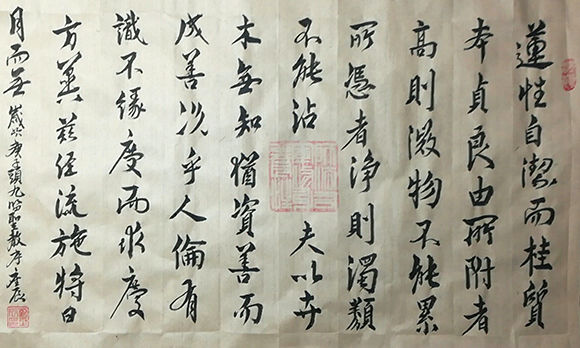 蓮性自潔而桂質
本貞良由所附者
高則微物不能累
所憑者淨則濁類
不能沾 夫以卉
木無知猶資善而
成善況乎人倫有
識不緣慶而求慶
方冀茲經流施將日
月而無 歲次庚子頭九臨聖教序